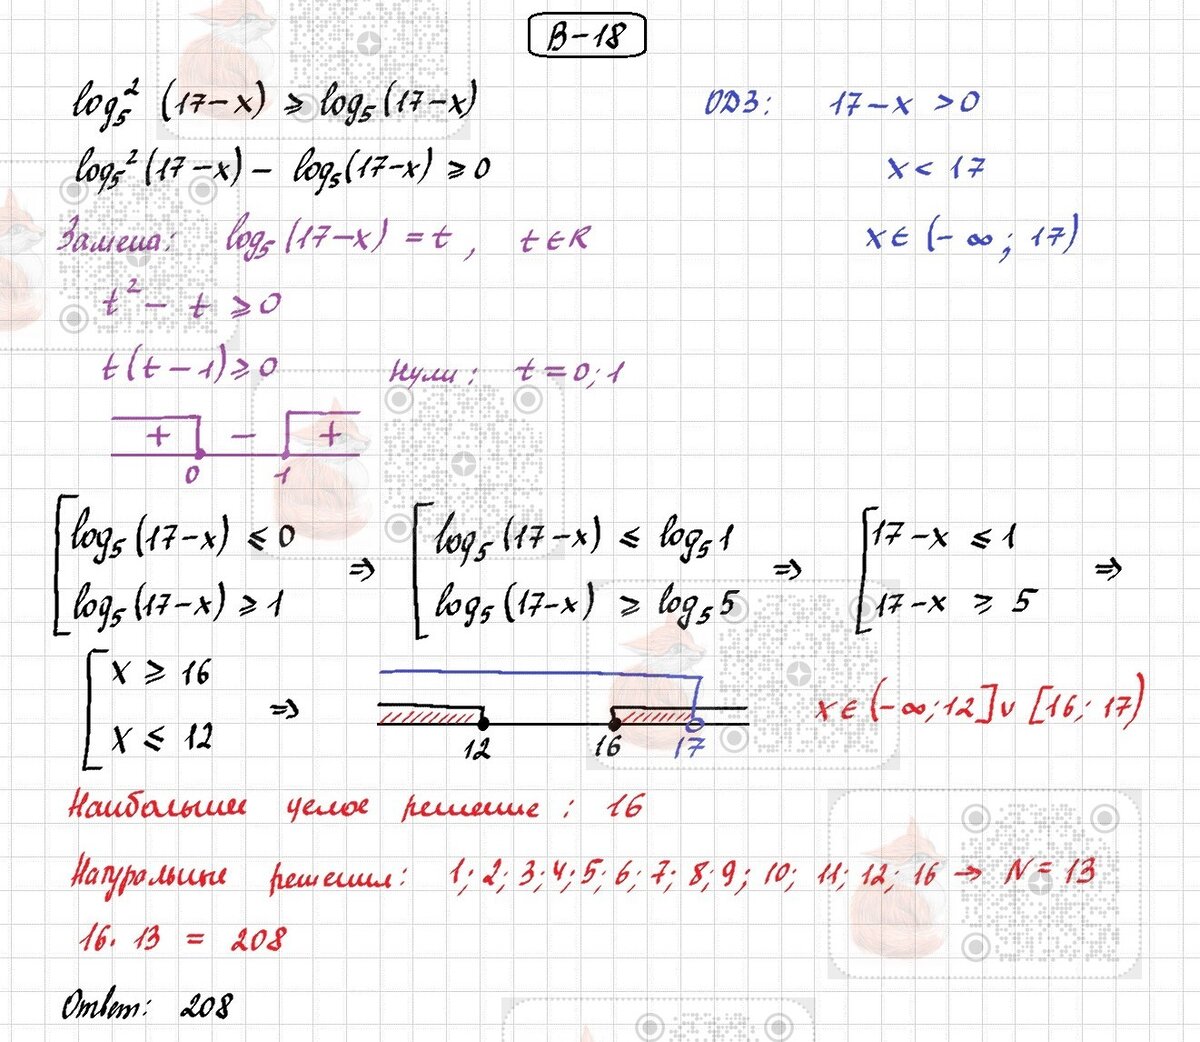 В-18
log₅²(17-x) ⩾ log₅(17-x)
ОДЗ: 17-x > 0
log₅²(17-x) - log₅(17-x) ⩾ 0
x < 17
Замена: log₅(17-x) = t, t∈R
x∈(-∞; 17)
t² - t ⩾ 0
t(t-1) ⩾ 0 Нули: t = 0; 1
+ - +
0 1
[ log₅(17-x) ⩽ 0 ⇒ [ log₅(17-x) ⩽ log₅1 ⇒ [ 17-x ⩽ 1 ⇒
log₅(17-x) ⩾ 1 log₅(17-x) ⩾ log₅5 17-x ⩾ 5
[ x ⩾ 16 ⇒
x ⩽ 12
12 16 17
x∈(-∞; 12]∪[16; 17)
Наибольшее целое решение: 16
Натуральные решения: 1; 2; 3; 4; 5; 6; 7; 8; 9; 10; 11; 12; 16 → N = 13
16 · 13 = 208
Ответ: 208